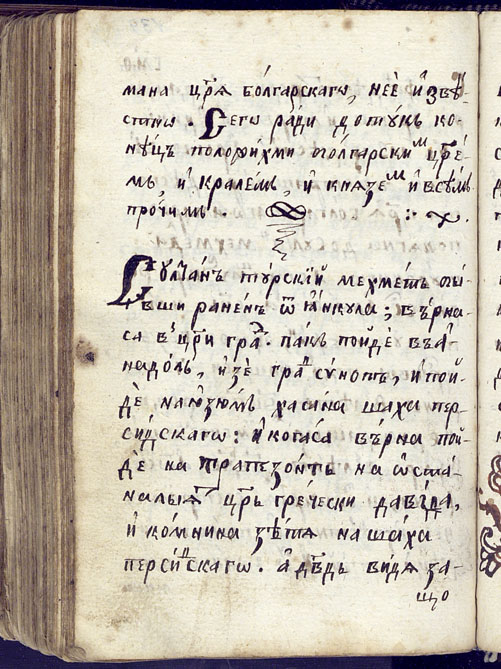 мана цр҃ѧ бо́лгарскагѡ, неѐ и҆звѣ́
стнѡ. Сегѡ ра́ди дотꙋкъ ко
нѣцъ положи́хми бо́лгарскиᷟ цр҃е́
мъ, и҆ кралє́мъ, и҆ кнѧ́зеᷟ и҆ всѣ́мъ
про́чимъ.
Сꙋлта́нъ тꙋ́рскїй мехме́тъ бы́
вши раненъ ѿ ꙗ҆́нкꙋла; вѣ́рна
са в цр҃и гра́ᷣ. па́къ по́йде въ а҆
надо́лъ, и҆ зѐ граᷣ сѵ́нопъ, и҆ пой
дѐ на ᲂузꙋ́мъ хаса́на ша́ха пер
си́дскагѡ: и҆ кога́са вѣ́рна пой
дѐ на трапезо́нтъ на ѡ҆ста́
налыѧ цр҃ь гре́чески дави́да,
и҆ ко́мнина зѣ́тѧ на ша́ха
перси́дскагѡ. а҆ дв҃дъ ви́дѧ за
що